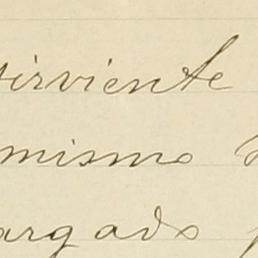 sirviente
mismo
argado